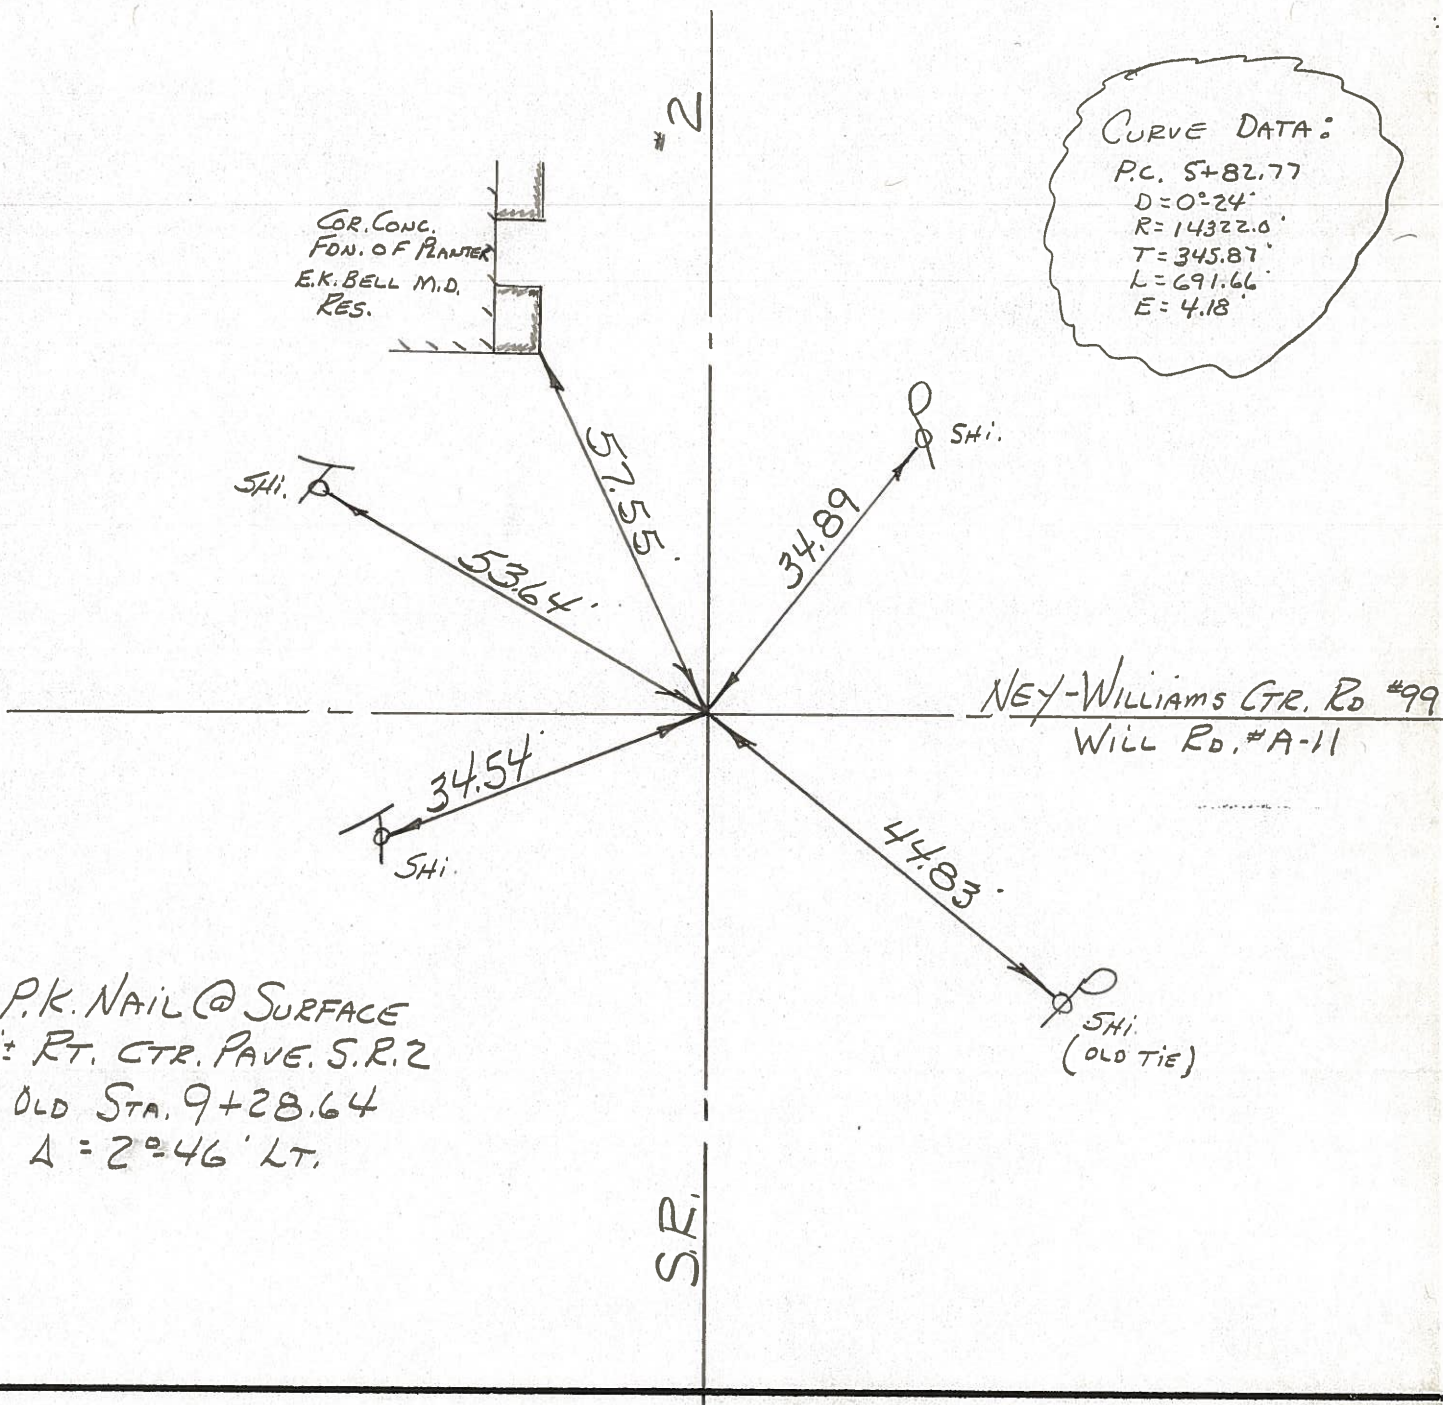 #2
CURVE DATA:
P.C. 5+82.77
D=0°-24'
R=14322.0'
T=345.87'
L=691.66'
E=4.18'
COR. CONC.
FDN. OF PLANTER
E.K. BELL M.D.
RES.
SHi.
SHi.
57.55'
34.89
53.64'
NEY-WILLIAMS CTR. RD #99
WILL RD. #A-11
34.54'
SHi.
44.83'
SHi.
(OLD TiE)
P.K. NAiL @ SURFACE
± RT. CTR. PAVE. S.R.2
OLD STA. 9+28.64
Δ=2°-46' LT.
S.R.